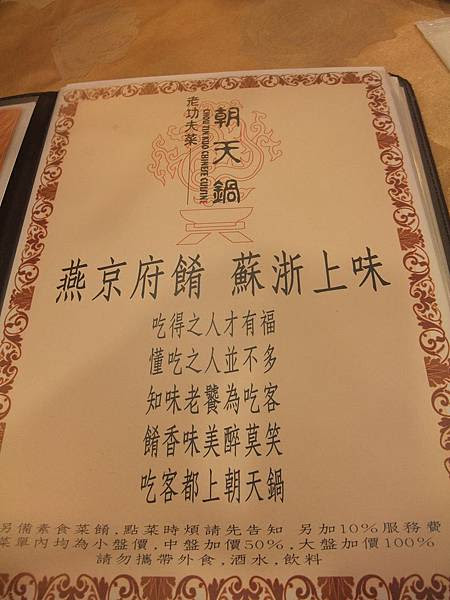 老功夫菜
CHAU TIN KUO CHINESE CUISINE
朝天鍋
燕京府餚 蘇浙上味
吃得之人才有福
懂吃之人並不多
知味老饕為吃客
餚香味美醉莫笑
吃客都上朝天鍋
另備素食菜餚．點菜時煩請先告知 另加10%服務費
菜單內均為小盤價．中盤加價50%．大盤加價100%
請勿攜帶外食．酒水．飲料